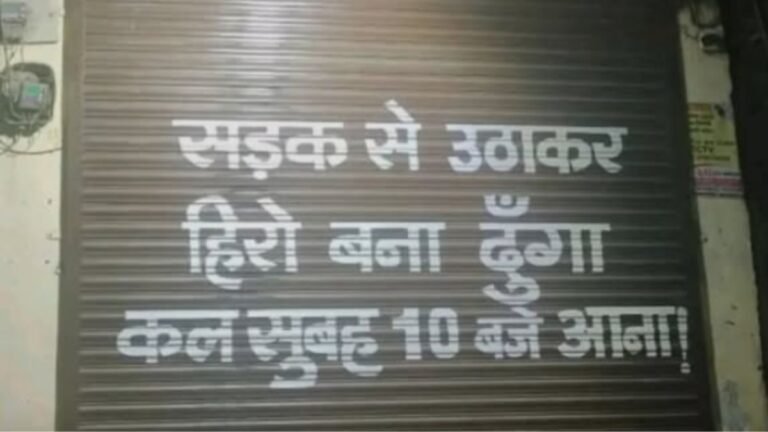 सड़क से उठाकर
हिरो बना ढुँगा
कल सुबह 10 बजे आना!
CCTV